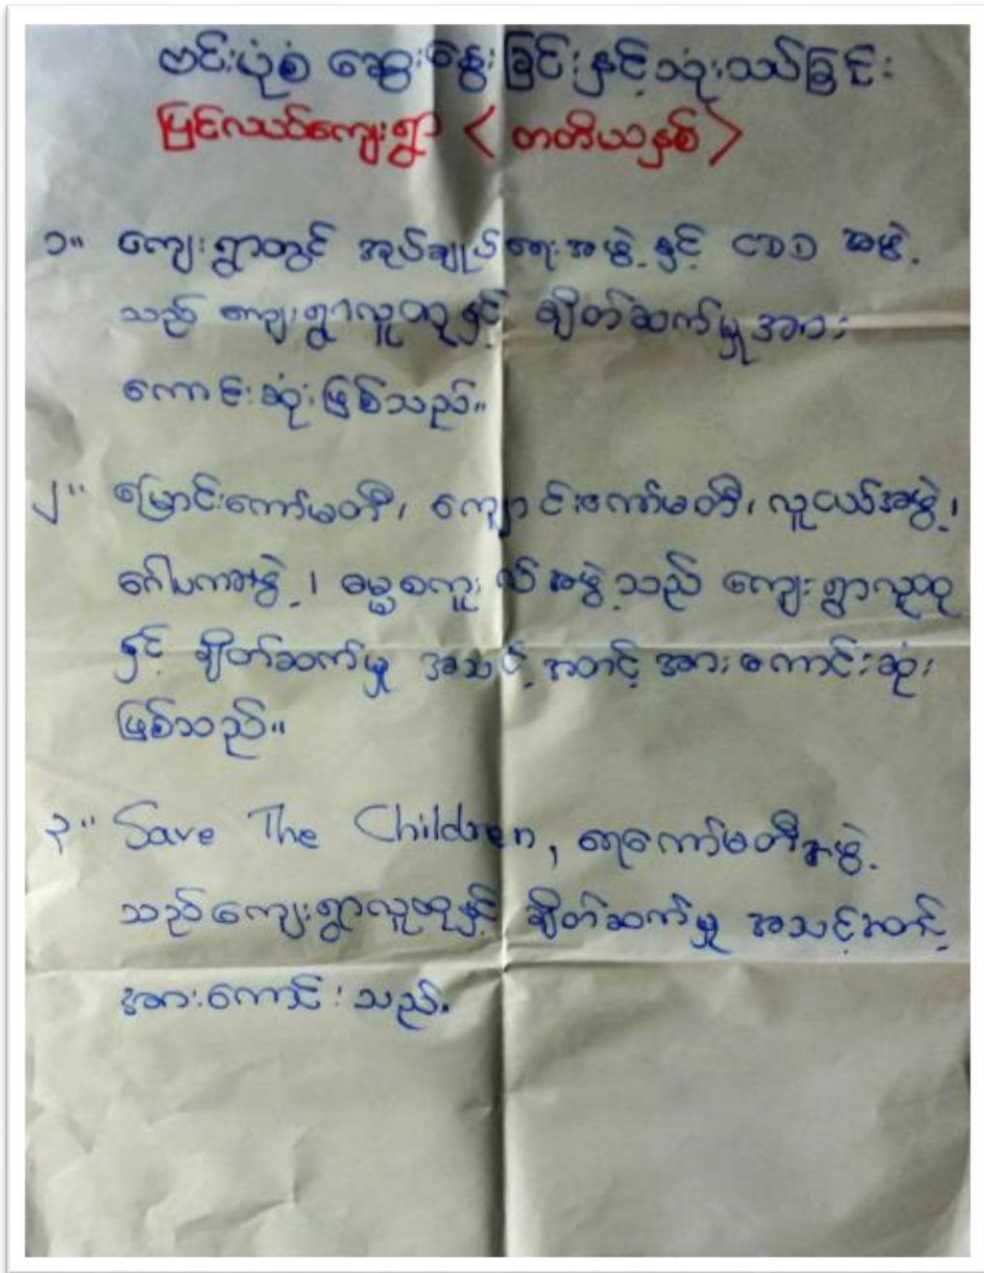 ဗင်းပုံစံ ဆွေးနွေးခြင်းနှင့်သုံးသပ်ခြင်း
မြင်လယ်ကျေးရွာ < တတိယနှစ် >
၁။ ကျေးရွာတွင် အုပ်ချုပ်ရေးအဖွဲ့ နှင့် CDD အဖွဲ့
သည် ကျေးရွာလူထုနှင့် ချိတ်ဆက်မှုအား
ကောင်းဆုံးဖြစ်သည်။
၂။ မြောင်းကော်မတီ၊ ကျောင်းကော်မတီ၊ လူငယ်အဖွဲ့၊
ဂေါပကအဖွဲ့၊ ဓမ္မစကူးလ်အဖွဲ့သည် ကျေးရွာလူထု
နှင့် ချိတ်ဆက်မှု အသင့်အတင့် အားကောင်းဆုံး
ဖြစ်သည်။
၃။ Save The Children, ရေကော်မတီအဖွဲ့
သည်ကျေးရွာလူထုနှင့် ချိတ်ဆက်မှု အသင့်အတင့်
အားကောင်းသည်။